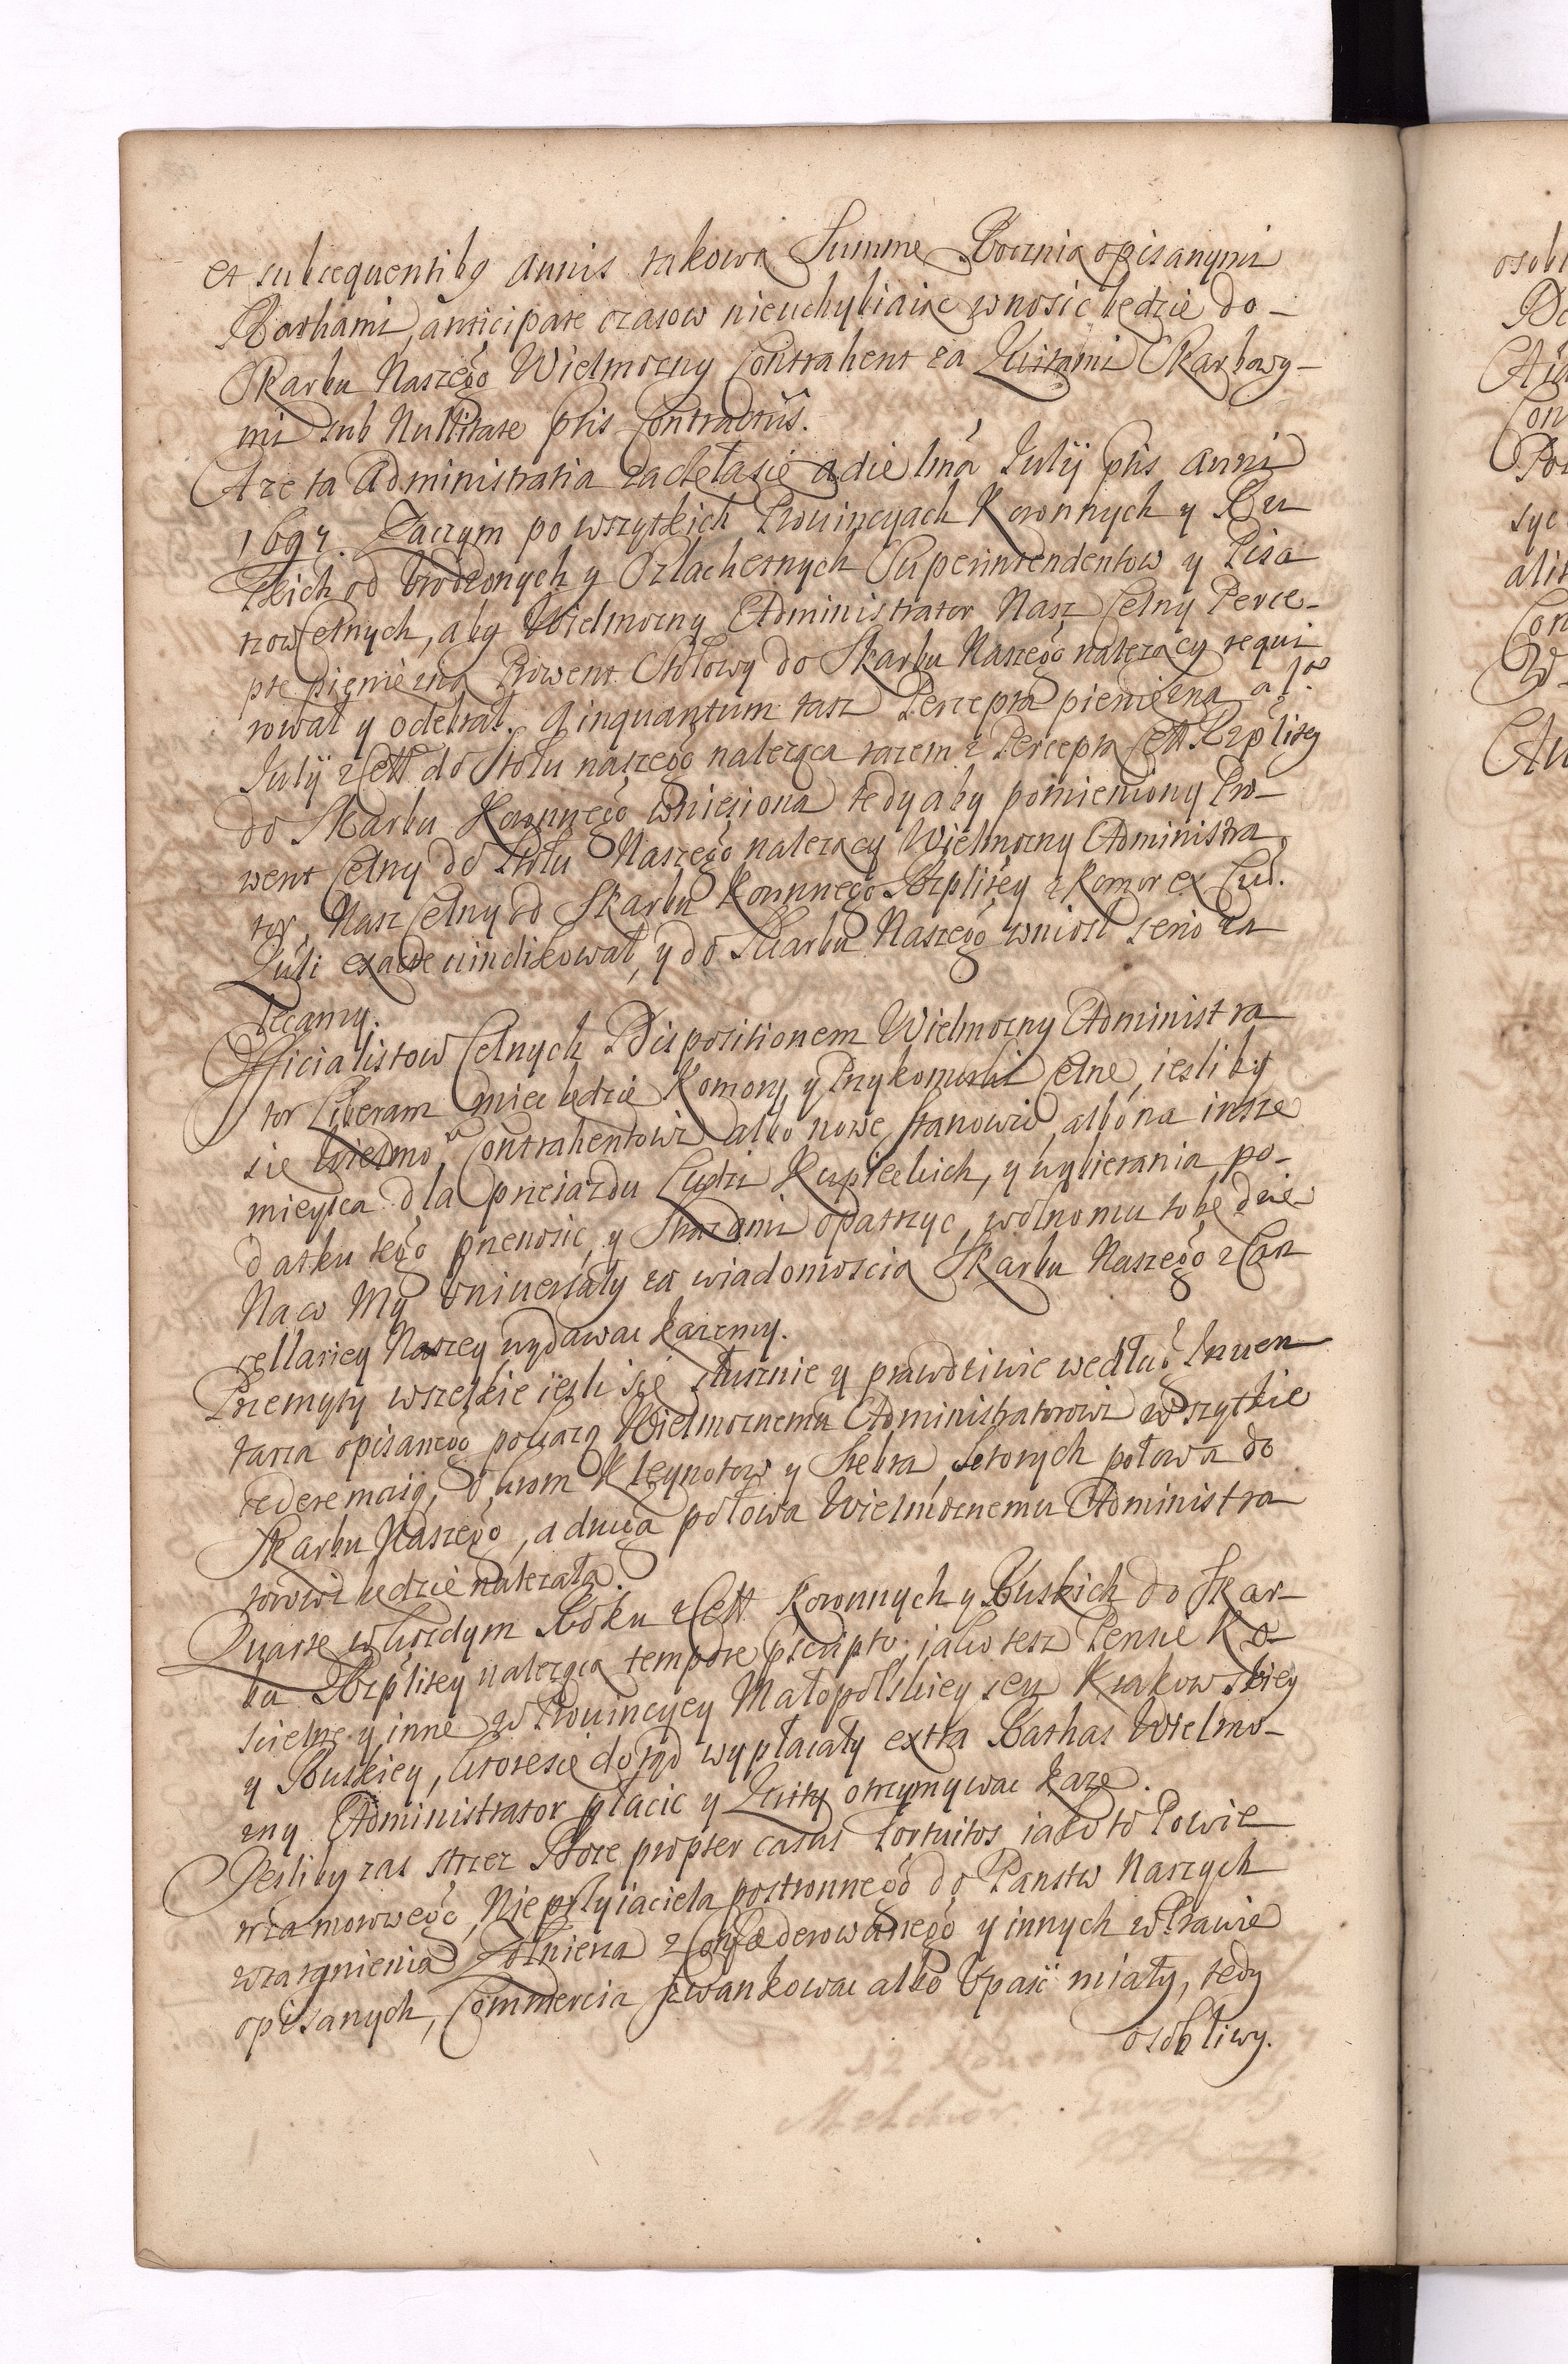 et subsequentibq annis takowa Summę Rocznia opisanymi
Rathami, anticipate czasow nieuchybiaiąc wnosic będzie do-
Skarbu Naszego Wielmozny Contrahent za Kwitami Skarbowy-
mi sub Nullitate pntis Contractus.
A ze ta Administratia zaczęła się a die 1ma Julij pntis anni
1697. Zaczym po wszytkich Prouincyach Koronnych y Ru
skich od Vrodzonych y Szlachetnych Superintendentow y Pisa
rzow Celnych, aby Wielmozny Administrator Nasz Celny Perce-
ptę pięniężną Prowent Stołowy do Skarbu Naszego nalezący requi
rował y odebrał. Q inquantum tasz Percepta pieniężna a 1ma
Julij z Cell do Stołu naszego należąca razem z Perceptą Cell Rzplitey
do Skarbu Koronnego wniesiona tedy aby pomieniony Pro-
went Celny do Stołu Naszego nalezący Wielmozny Administra
tor Nasz Celny od Skarbu Koronnego Rzplitey z Komor ex Cur.
Juli exacte uindikował, y do Skarbu Naszego wniosł serio za
lecamy.
Officialistow Celnych Dispositionem Wielmozny Administra
tor Liberam miec będzie Komory y Przykomorki Celne, iesliby
się Wielmo. Contrahentowi albo nowe stanowic, albo na insze
mieysca dla przeiazdu Ludzi Kupieckich, y wybierania po-
datku tego przenosic, y Strazami opatrzyc, wolno mu to będzie
Na co My Vniuersały za wiadomoscią Skarbu Naszego z Can
cellariey Naszey wydawac kazemy.
Przemyty wszelkie iesli się słusznie y prawdziwie według Inuen
tarza opisanego pokazą Wielmoznemu Administratorowi wszytkie
cedere maią, okrom Kleynotow y Srebra, ktorych połowa do
Skarbu Naszego, a druga połowa Wielmoznemu Administra
torowi będzie nalezała.
Quartę w kozdym Roku z Cell Koronnych y Ruskich do Skar-
bu Rzplitey nalezącą tempore pscripto, iako tesz Pensie Ko-
scielne y inne w Prouincyey Małopolskiey sey Krakowskiey
y Ruskiey, ktore się dotąd wypłacały extra Rathas Wielmo-
zny Administrator płacic y Kwity otrzymywac kaze.
Jesliby zas strzez Boze propter casus fortuitos iako to Powie
trza morowego, Nieprzyiaciela postronnego do Panstw Naszych
wtargnienia Zołnierza z Confoederowanego y innych w Prawie
opisanych, Commercia szwankowac albo Vpasc miały, tedy
osobliwy.